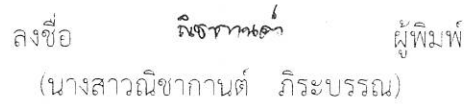 ลงชื่อ ณิชากานต์ ผู้พิมพ์
(นางสาวณิชากานต์ ภิระบรรณ)